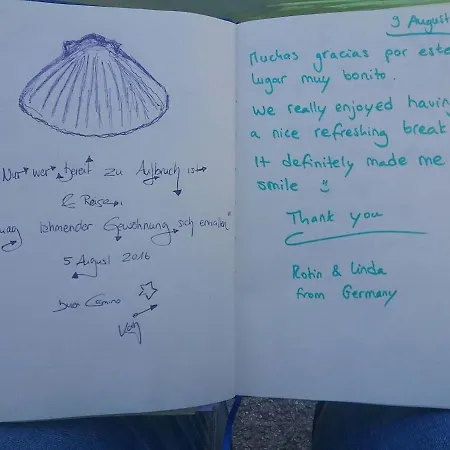 Nur wer bereit zu Aufbruch ist
& Reise,
mag lähmender Gewöhnung sich entraffen"
5 August 2016
Buen Camino
9 August
Muchas gracias por este
lugar muy bonito.
We really enjoyed having
a nice refreshing break
It definitely made me
smile
Thank you
Robin & Linda
from Germany